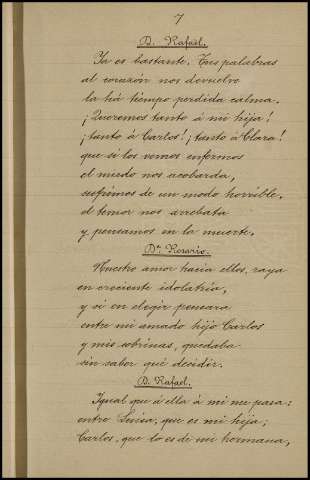 7
D. Rafael.
Ya es bastante. Tus palabras
al corazón nos devuelve
la há tiempo perdida calma.
¡Queremos tanto á mi hija!
¡tanto á Carlos! ¡tanto á Clara!
que si los vemos enfermos
el miedo nos acobarda,
sufrimos de un modo horrible,
el temor nos arrebata
y pensamos en la muerte.
Dª. Rosario.
Nuestro amor hacia ellos, raya
en creciente idolatría,
y si en elegir pensara
entre mi amado hijo Carlos
y mis sobrinas, quedaba
sin saber qué decidir.
D. Rafael.
Igual que á ella á mi me pasa:
entre Luisa, que es mi hija;
Carlos, que lo es de mi hermana,